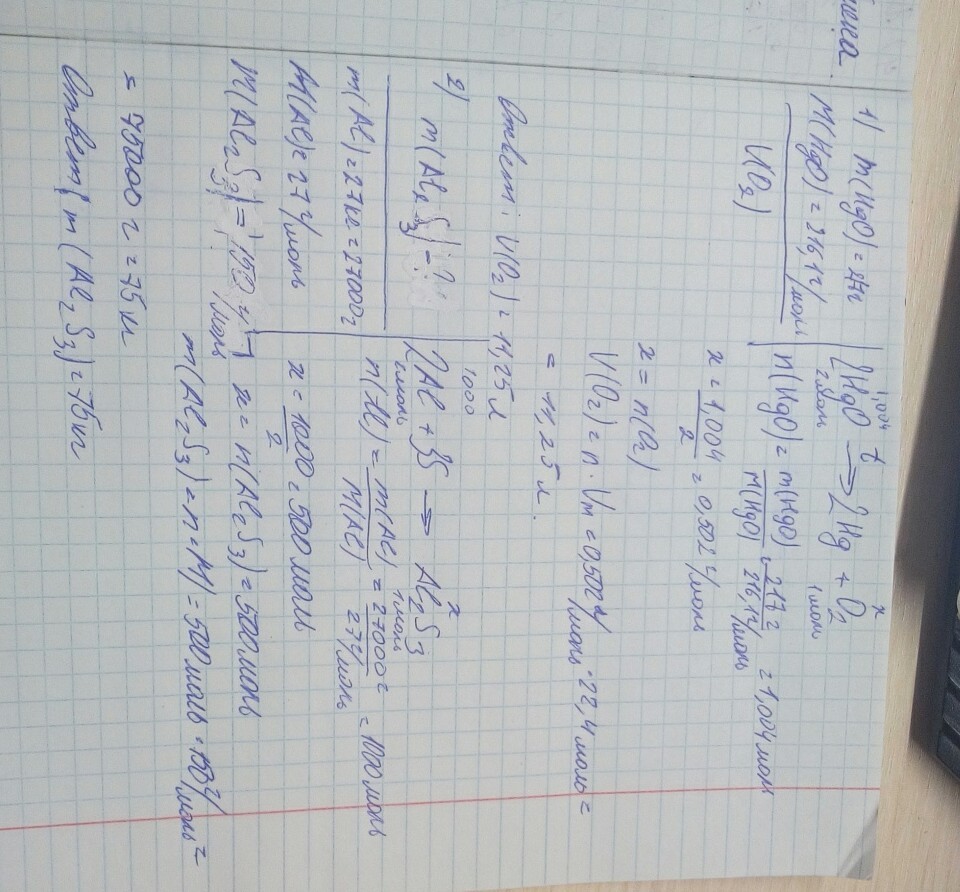 1) m(HgO) = 217г
M(HgO) = 216,1 г/моль
V(O₂)
1,004 t x
2HgO → 2Hg + O₂
2моль 1моль
n(HgO) = m(HgO)/M(HgO) = 217г/216,1г/моль = 1,004 моль
x = 1,004/2 = 0,502 г/моль
x = n(O₂)
V(O₂) = n · Vm = 0,502 г/моль · 22,4 моль =
= 11,25 л.
Ответ: V(O₂) = 11,25 л
2) m(Al₂S₃) - ?
m(Al) = 27кг = 27000г
M(Al) = 27 г/моль
M(Al₂S₃) = 150 г/моль
1000 x
2Al + 3S → Al₂S₃
2моль 1моль
n(Al) = m(Al)/M(Al) = 27000г/27г/моль = 1000 моль
x = 1000/2 = 500 моль
x = n(Al₂S₃) = 500 моль
m(Al₂S₃) = n = M) = 500 моль = 150 г/моль =
= 75000 г = 75 кг
Ответ: m(Al₂S₃) = 75кг